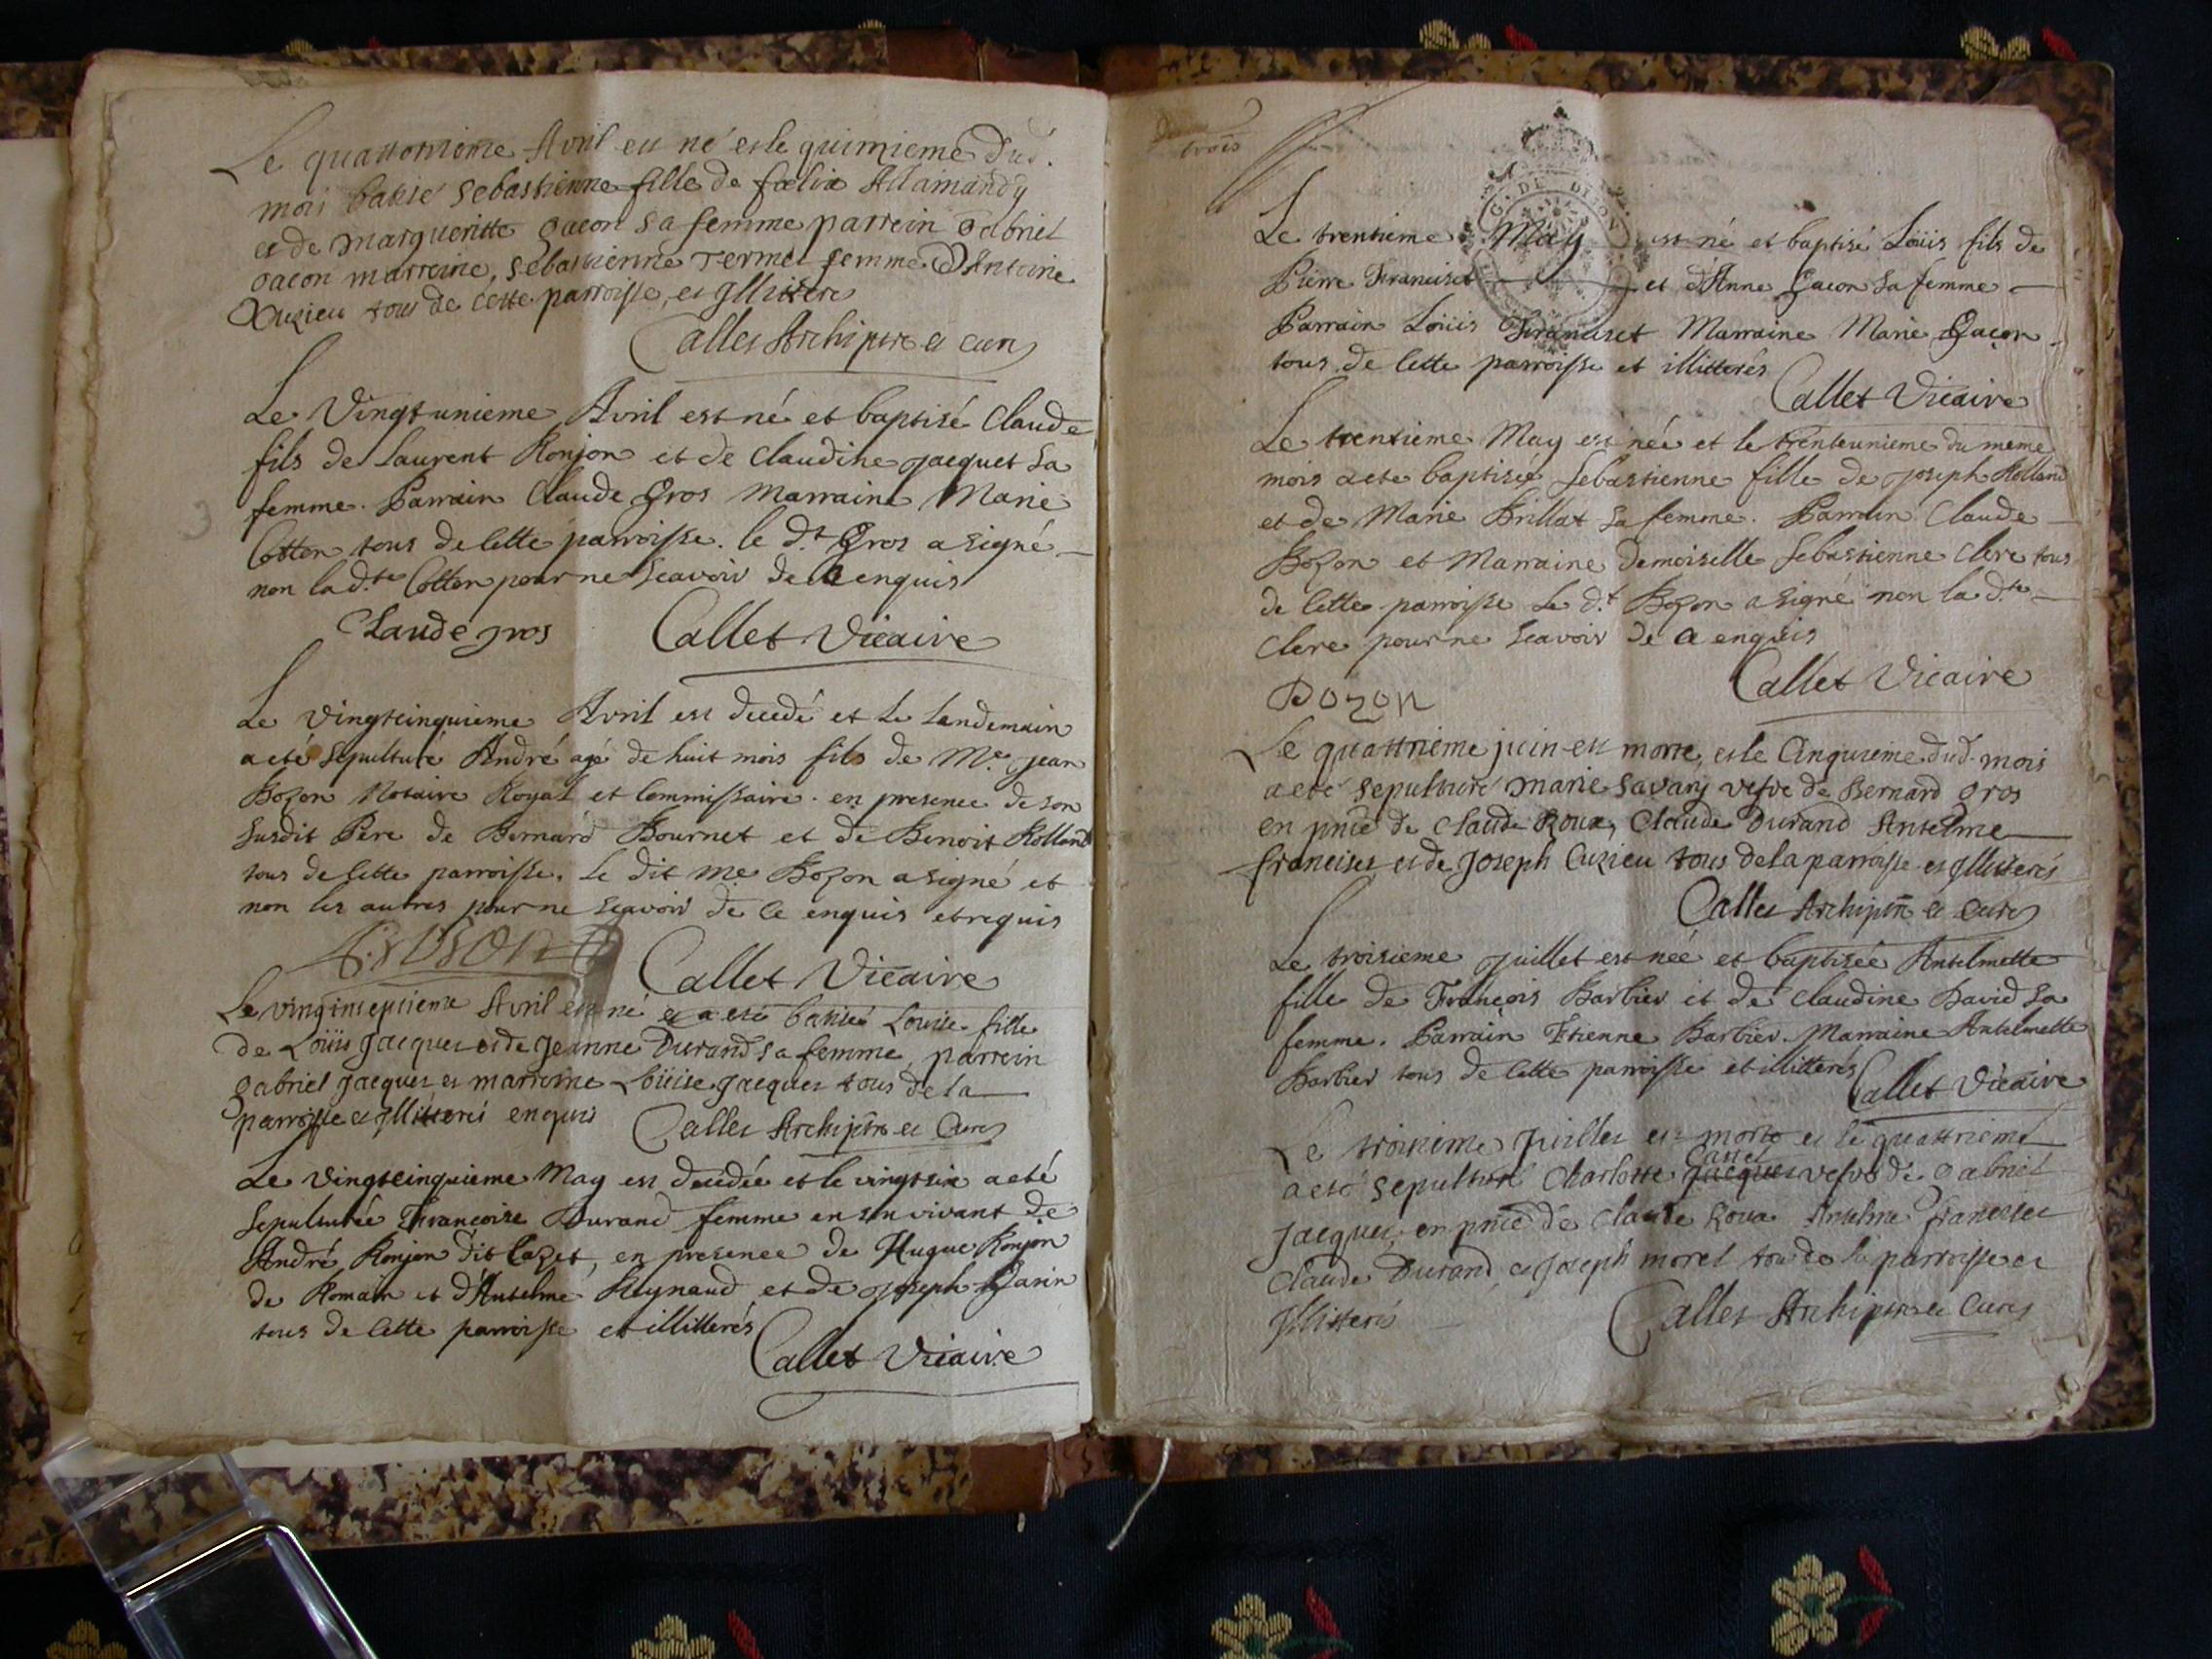 Le quattorzieme Avril est né et le quinzieme dud.
mois batisé Sebastienne fille de fœlix Allamandy
et de margueritte gacon sa femme parrein gabriel
gacon marreine, sebastienne Termet femme d'Antoine
Cuzieu tous de cette parroisse, et Illitteres
Callet Archiptre et curé
Le Vingtunieme Avril est né et baptisé Claude
fils de Laurent Ronjon et de Claudine Jacquet sa
femme. Parrain Claude Gros Marraine Marie
Cotton tous de Cette parroisse. le d.t Gros a signé
non la d.te Cotton pour ne scavoir de ce enquis
Claude gros Callet Vicaire
Le vingtcinquieme Avril est decedé et le Lendemain
a eté sepulturé André agé de huit mois fils de M.e Jean
Bozon Notaire Royal et Commissaire. en presence de son
susdit Père de Bernard Bournet et de Benoit Rolland
tous de Cette parroisse. Le dit M.e Bozon a signé et
non les autres pour ne scavoir de Ce enquis et requis
Callet Vicaire
Le vingtnseptieme Avril est né et a eté batisé Louise fille
de Loüis Jacquet et de Jeanne Durand sa femme, parrein
gabriel jacquet et marreine Loüise jacquet tous de la
parroisse et Illitterés enquis Callet Archiptre et Curé
Le vingtcinquieme May est decedée et le vingtsix a eté
sepulturée Francoise Durand femme en son vivant de
André Ronjon dit Cazet, en presence de Hugue Ronjon
de Romain et d'Antelme Reynaud et de Joseph Garin
tous de Cette parroisse et illitterés
Callet Vicaire
trois
G. DE DIJON
Le trentieme May est né et baptisé Loüis fils de
Pierre Franciset et d'Anne Gacon sa femme
Parrain Loüis Franciset Marraine Marie Gaçon
tous de Cette parroisse et illitterés
Callet Vicaire
Le trentieme May est née et le trenteunieme du meme
mois a ete baptisée Sebastienne fille de Joseph Rolland
et de Marie Brillat sa femme. Parrain Claude
Bozon et Marraine Demoiselle Sebastienne Clerc tous
de Cette parroisse Le d.t Bozon a signé non la d.te
Clerc pour ne scavoir de ce enquis
Callet Vicaire
Bozon
Le quattrieme juin est morte, et le Cinquieme dud. mois
a eté sepulturé marie savary vefve de Bernard gros
en pnce de Claude Roux, Claude Durand Antelme
franciset et de Joseph Cuzieu tous de la parroisse et Illitterés
Callet Archiptre et Curé
Le troisieme Juillet est née et baptisée Antelmette
fille de François Barbier et de Claudine David sa
femme. Parrain Etienne Barbier. Marraine Antelmette
Barbier tous de Cette parroisse et illitterés
Callet Vicaire
Le troisieme Juillet est morte et le quattrieme
a eté sepulturé Charlotte jacquet vefve de gabriel
Jacquet, en pnce de Claude Roux Antelme franciset
Claude Durand, et Joseph morel tous de la parroisse et
Illitterés
Callet Archiptre et Curé